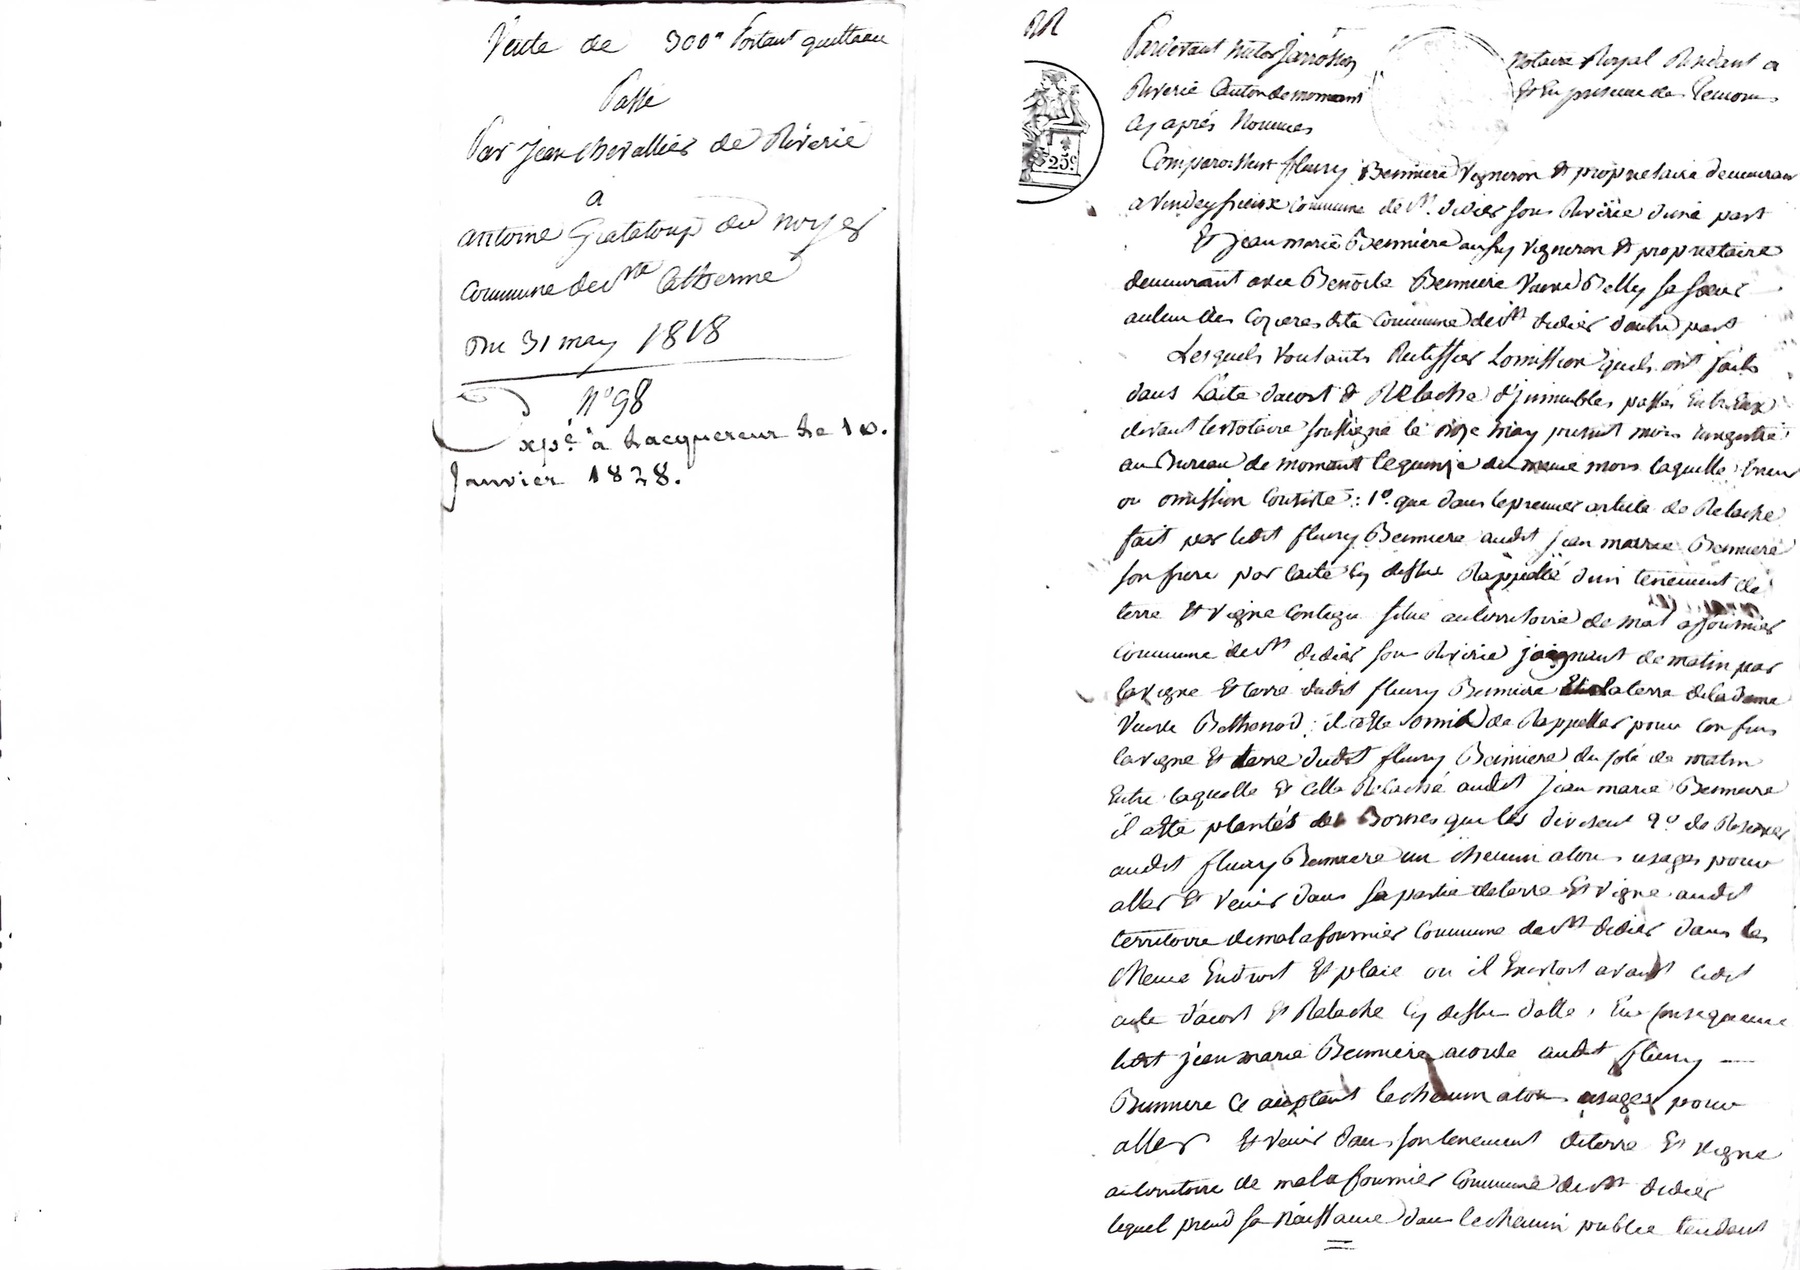 Vente de 300ᶠ Portant quittance
Passé
Par jean chevallier de Riverie
a
antoine Grataloup du noyer
commune de Ste Catherine
Du 31 may 1818
N° 98
Expé. à Lacquereur Le 10.
Janvier 1828.
RR
Pardevant Jarrosson Notaire Royal Résidant a
Riverie Canton de mornant Et En présence des Temoins
Cy après Nommés
25c
Comparoissent fleury Bernniere Vigneron Et propriétaire demeurant
a commune de St. didier sous Riverie d'une part
Et jean marie Bernniere aussy vigneron Et propriétaire
demeurant avec Benoite Bernniere Veuve Belly sa sœur
au lieu des Cozieres dite Commune de St didier d'autre part
Lesquels voulants Rectiffier Lomission quils ont faits
dans Lacte dacort Et Relache d'jmmeubles passés Entr'Eux
devant le notaire soussigné le onze may présent mois Enregistré
au Bureau de mornant le quinze du meme mois laquelle Erreur
ou omission Consiste : 1° que dans le premier article de Relache
fait par ledit fleury Bernniere audit jean marie Bernniere
son frere par lacte Cy dessus Rappellé d'un tenement de
terre Et vigne Contigu situé au territoire de mal a fournier
Commune de St didier sous Riverie joignant de matin par
la vigne Et terre dudit fleury Bernniere Et la terre de la dame
Veuve Bethenod : il a été omid de Rappeller pour confins
la vigne Et terre dudit fleury Bernniere du coté de matin
Entre laquelle Et celle Relaché audit jean marie Bernniere
il a été plantés des Bornes qui les divisent 2° de Réserver
audit fleury Bernniere un chemin a tous usages pour
aller Et venir dans sa partie de terre Et vigne audit
territoire de mal a fournier Commune de St didier dans le
meme Endroit Et place ou il Existoit avant ledit
acte d'acort Et Relache Cy dessus datte, En consequence
ledit jean marie Bernniere acorde audit fleury —
Bernniere Ce aceptant le chemin a tous usages pour
aller Et venir dans son tenement de terre Et vigne
au territoire de mal a fournier Commune de St didier
lequel prend sa Naissance dans le chemin public tendant